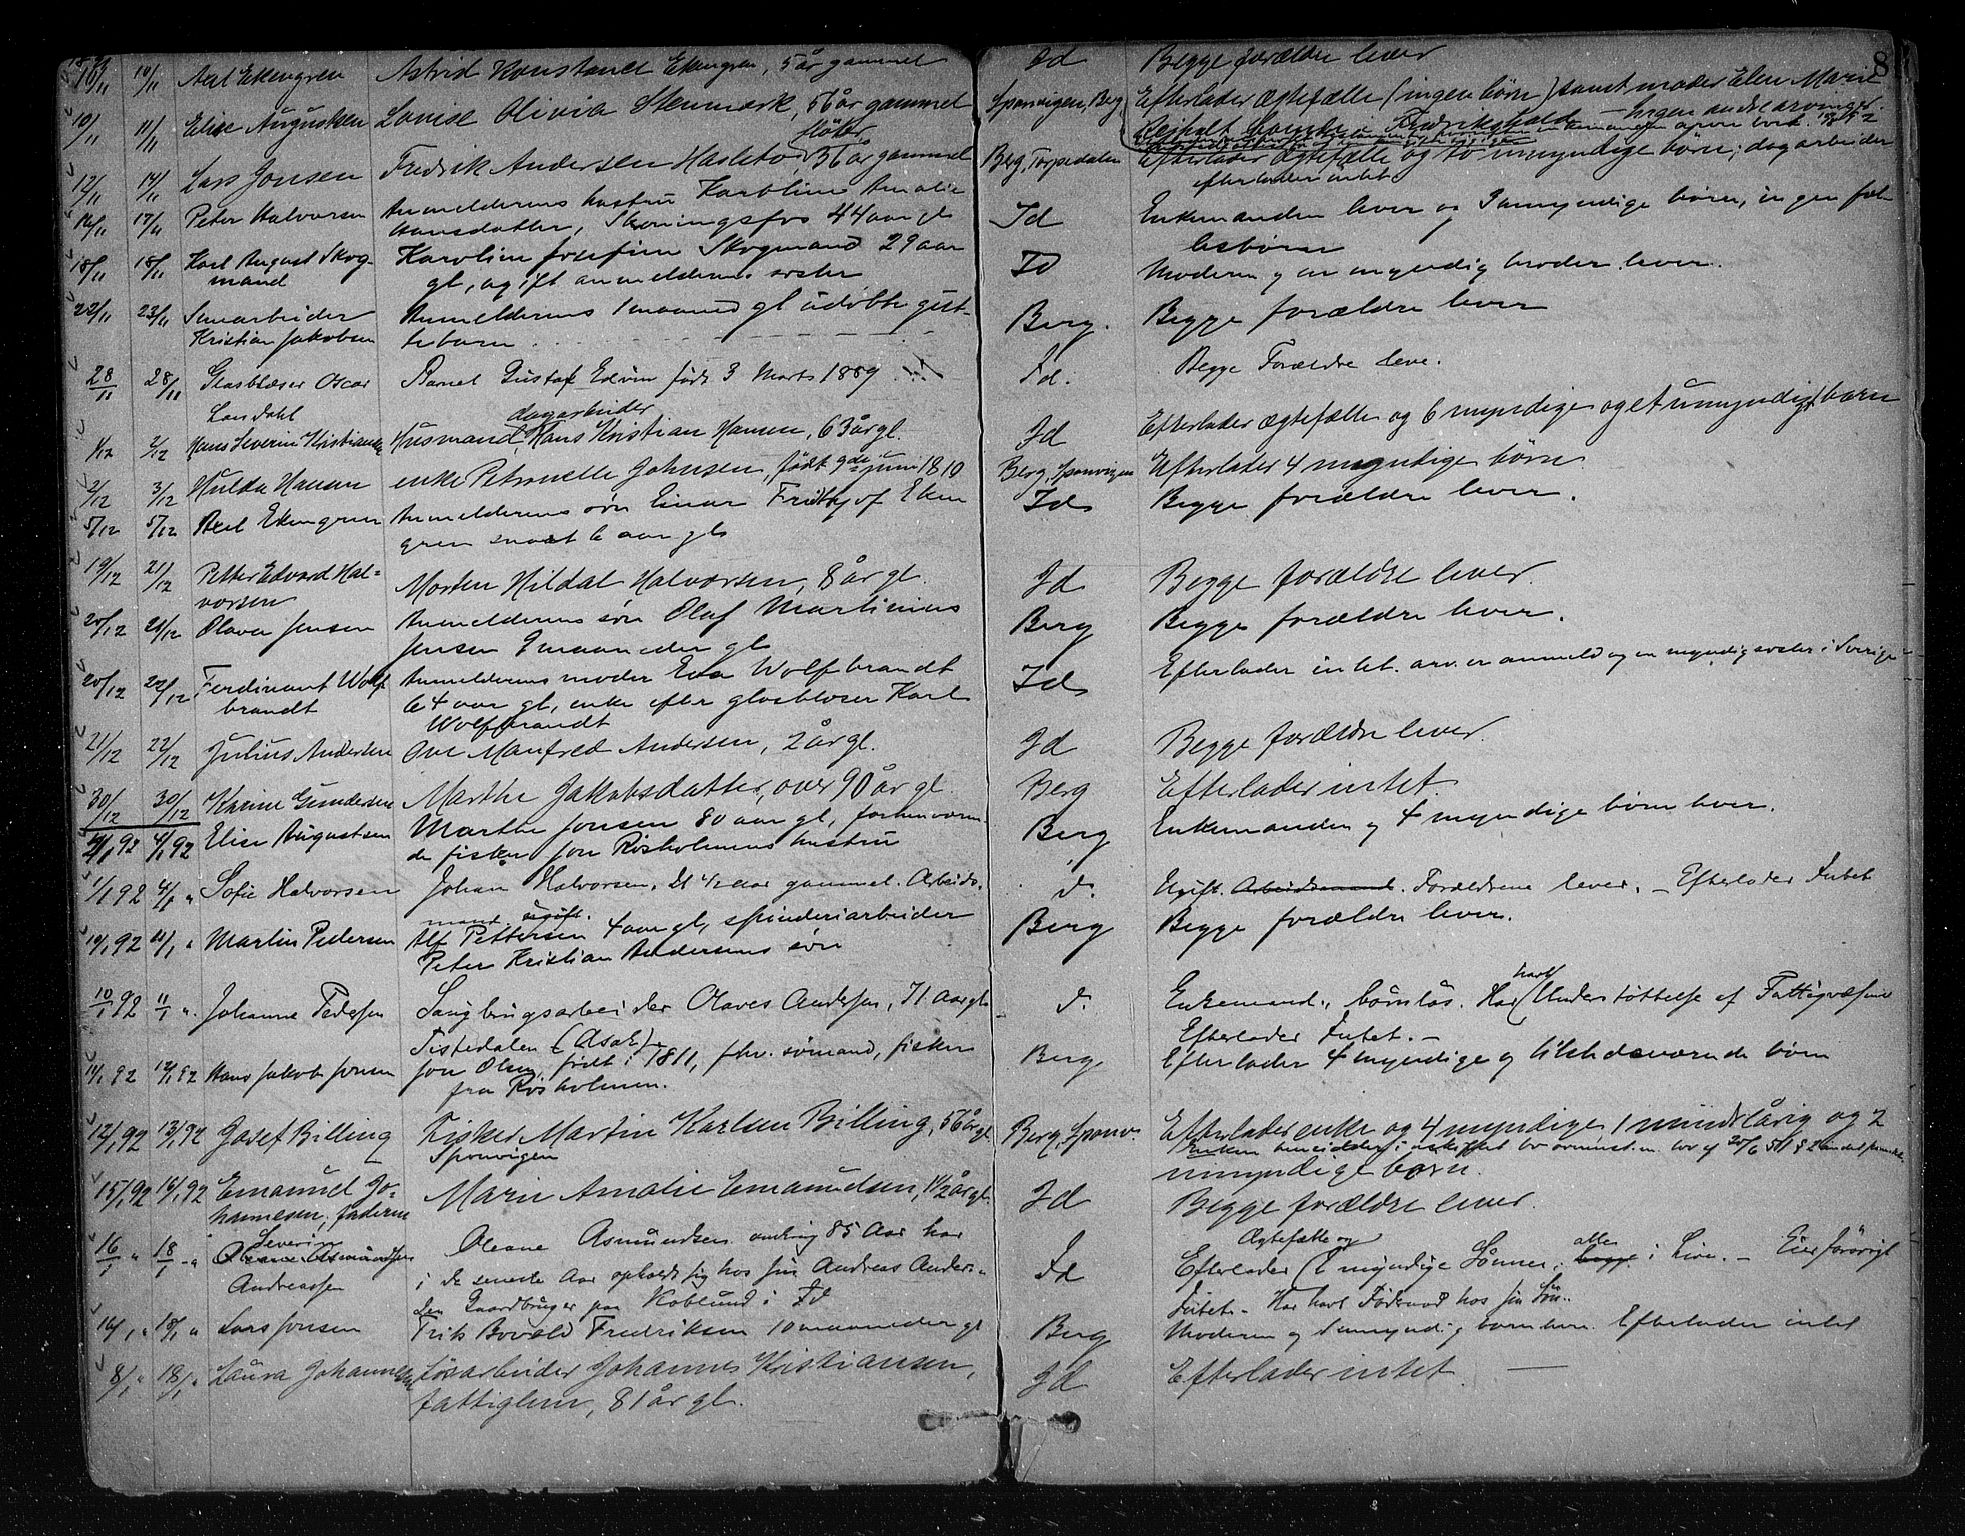 8
10/11 10/11 Axel Ekengren Astrid Konstance Ekengren, 5 år gammel Id Begge forældre lever
10/11 11/11 Elise Augustsen Lovise Olivia Stenmark, 56 år gammel Sponvigen, Berg Efterlader ægtefælle (ingen børn) samt moder Elen Marie
Fredrikshald – Ingen andre arvinger.
12/11 14/11 Lars Jonsen Fredrik Andersen Hasleto, fløter 36 år gammel Berg, Torpedalen Efterlader ægtefælle og to umyndige børn; dagarbeider
efterlader intet
16/11 17/11 Peter Halvorsen Anmelderens hustru Karoline Amalie
Hansdatter, Skoningsfos 44 aar gl Id Enkemanden lever og 3 umyndige børn, ingen fæl
lesbørn
18/11 18/11 Karl August Skog-
mand Karoline Josefine Skogmand 29 aar
gl, ugift anmelderens søster Id Moderen og en myndig broder lever.
22/11 23/11 Stenarbeider
Kristian Jakobsen Anmelderens 1 maaned gl udøbte gut-
tebarn Berg. Begge forældre lever
28/11 28/11 Glasblæser Oscar
Landahl Barnet Gustaf Edvin født 3 Marts 1889 Id. Begge Forældre leve.
1/12 2/12 Hans Severin Kristiansen Husmand, dagarbeider Hans Kristian Hansen, 63 år gl. Id Efterlader ægtefælle og 6 myndige og et umyndigt barn
2/12 3/12 Hulda Hansen enke Petronelle Johnsen, født 9de juni 1810 Berg, Sponvigen Efterlader 4 myndige børn
5/12 5/12 Axel Ekengren Anmelderens søn Einar Fridtjof Eken
gren snart 6 aar gl Id Begge forældre lever.
19/12 21/12 Petter Edvard Hal-
vorsen Morten Hildal Halvorsen, 8 år gl. Id Begge forældre lever.
20/12 21/12 Olava Jensen Anmelderens søn Olaf Martinius
Jensen 2 maaneder gl Berg Begge forældre lever.
20/12 22/12 Ferdinant Wolf
brandt Anmelderens moder Eva Wolfbrandt
64 aar gl, enke efter glasblæser Karl
Wolfbrandt Id Efterlader intet. arv. er anmeld og en myndig søster i Sverige
21/12 22/12 Julius Andersen Ove Manfred Andersen, 2 år gl. Id Begge forældre lever.
30/12 30/12 Karine Gundersen Marthe Jakobsdatter, over 90 år gl. Berg Efterlader intet.
4/1 92 Elise Augustsen Marthe Jonsen 80 aar gl, forhenværen-
de fisker Jon Røsholmens hustru Berg Enkemanden og 4 myndige børn lever.
1/1 92 4/1 " Sofie Halvorsen Johan Halvorsen, 21 1/2 aar gammel. Arbeids-
mand. ugift. d. Ugift. Arbeidsmand. Forældrene lever. – Efterlader Intet
10/1 92 11/1 " Martin Pedersen Alf Pettersen 4 aar gl, spinderiarbeider
Peter Kristian Andersens søn Berg Begge forældre lever.
10/1 92 11/1 ". Johanne Pedersen Saugbrugsarbeider Olaves Andersen, 71 aar gl
Tistedalen (Asak) d. Enkemand, børnløs. Har havt Understøttelse af Fattigvæsenet
Efterlader Intet. –
11/1 92 12/1 92 Hans Jakob Jonsen Jon Olsen, født i 1811, fhv. sømand, fisker
fra Røsholmen. Berg Efterlader 4 myndige og tilstedeværende børn
12/1 92 13/1 92 Josef Billing Fisker Martin Karlsen Billing, 56 år gl.
Sponvigen Berg, Sponv. Efterlader enke og 4 myndige, 1 mindreårig og 2
umyndige børn.
15/1 92 16/1 92 Emanuel Jo-
hannesen, faderen Marie Amalie Emanuelsen, 1 1/2 år gl. Id Begge forældre lever.
16/1 " 18/1 " Severin
Andreassen Oleane Asmundsen omkring 85 Aar har
i de seneste Aar opholdt sig hos sin Andreas Ander-
sen Gaardbruger paa Koblund i Id Id Efterlader (Ægtefælle og 2 myndige Sønner; begge alle i Live. – Eier forøvrigt
Intet. – Har havt Føderaad hos sin Søn.
16/1 " 18/1 " Lars Jonsen Frits Bovald Fredriksen 10 maaneder gl Berg Moderen og 1 umyndig barn lever. Efterlader intet
8/1 " 18/1 " Laura Johannesen Løsarbeider Johannes Kristiansen,
fattiglem, 81 år gl. Id Efterlader intet.